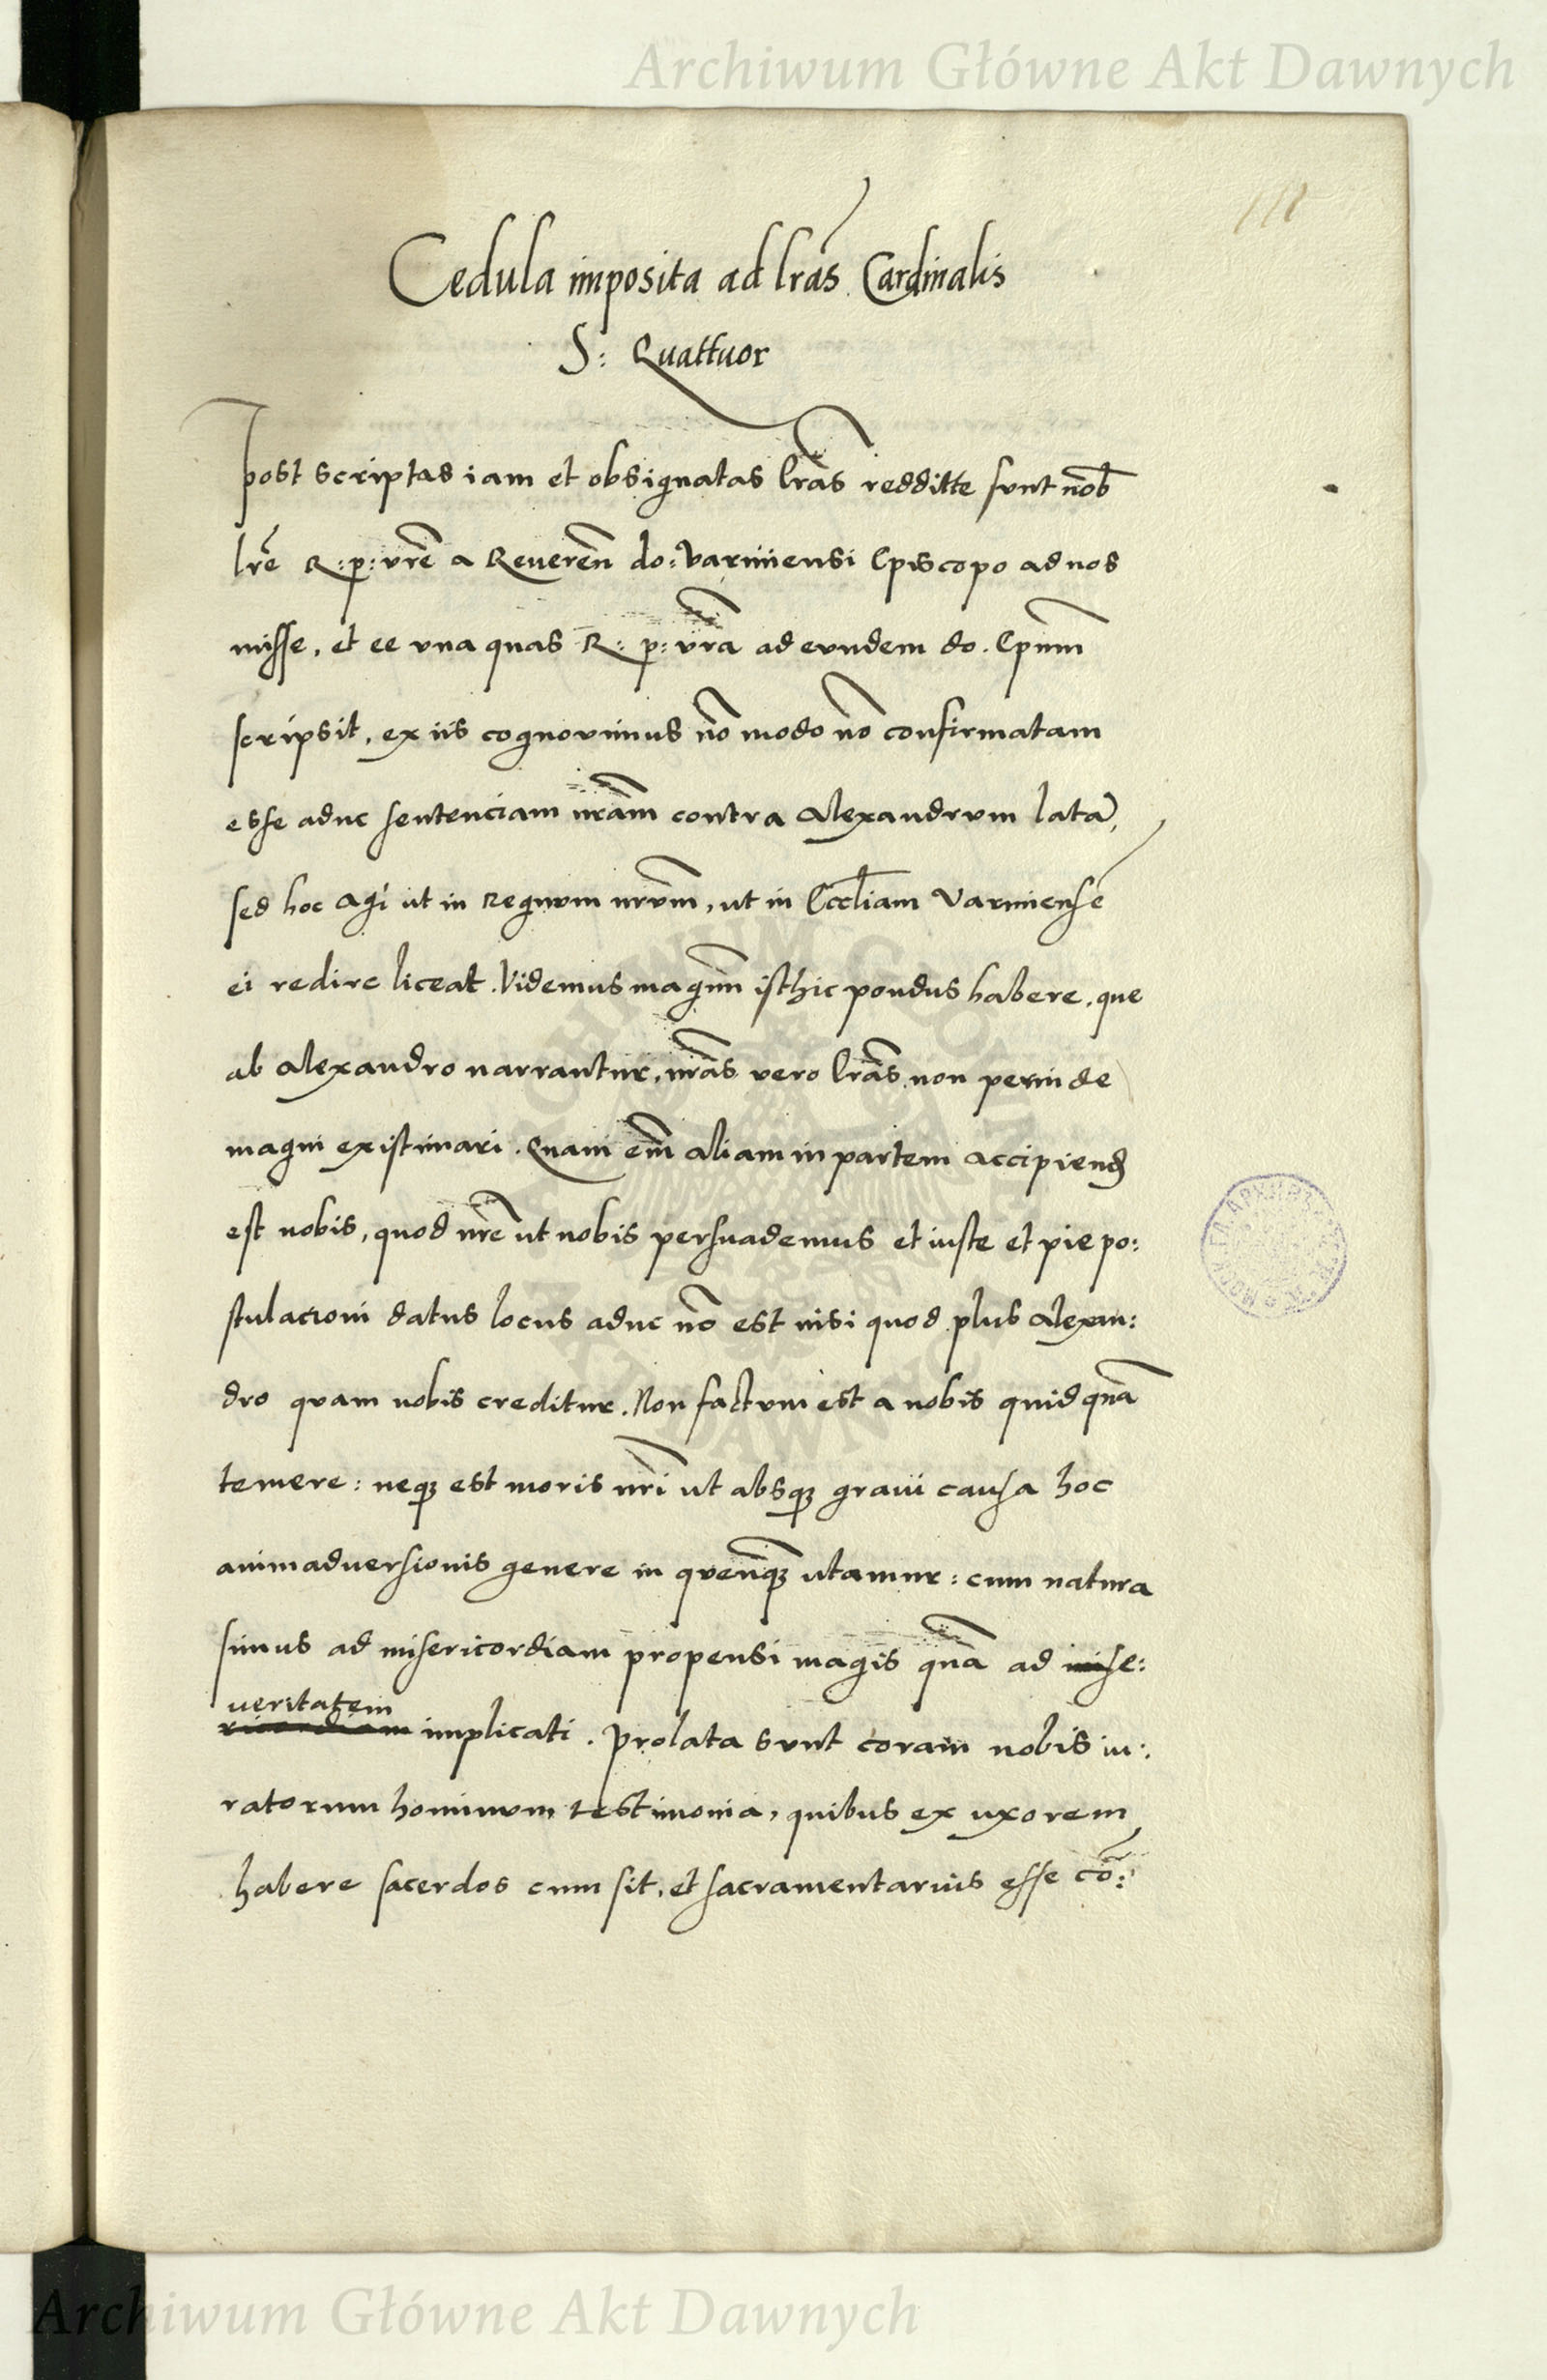 Archiwum Główne Akt Dawnych
111
Cedula imposita ad lr̄as Cardinalis
S: Quattuor
post scriptas iam et obsignatas lr̄as redditte sunt nob̄
lr̄e R: p: vr̄e a Reueren̄ do: Varmiensi Episcopo ad nos
misse, et ee vna quas R: p: vr̄a ad eundem do. Ep̄um
scripsit, ex iis cognouimus nō modo nō confirmatam
esse aduc sentenciam nr̄am contra Alexandrum latā,
sed hoc agi ut in Regnum nr̄um, ut in Eccl̄iam Varmiensē
ei redire liceat. Videmus magnū isthic pondus habere, que
ab Alexandro narrantur, nr̄as vero lr̄as non perinde
magni existimari. Quam em̄ aliam in partem accipiend̄
est nobis, quod nr̄e ut nobis persuademus et iuste et pie po:
stulacioni datus locus aduc nō est nisi quod plus Alexan:
dro quam nobis creditur. Non factum est a nobis quidquā
temere: neqꝫ est moris nr̄i ut absqꝫ graui causa hoc
animaduersionis genere in quenqꝫ utamur: cum natura
simus ad misericordiam propensi magis quā ad mise:
ueritatem
ricordiam implicati. Prolata sunt coram nobis iu:
ratorum hominum testimonia, quibus ex uxorem
habere sacerdos cum sit, et sacramentarius esse cō:
ARCHIWUM GŁÓWNE AKT DAWNYCH
Archiwum Główne Akt Dawnych